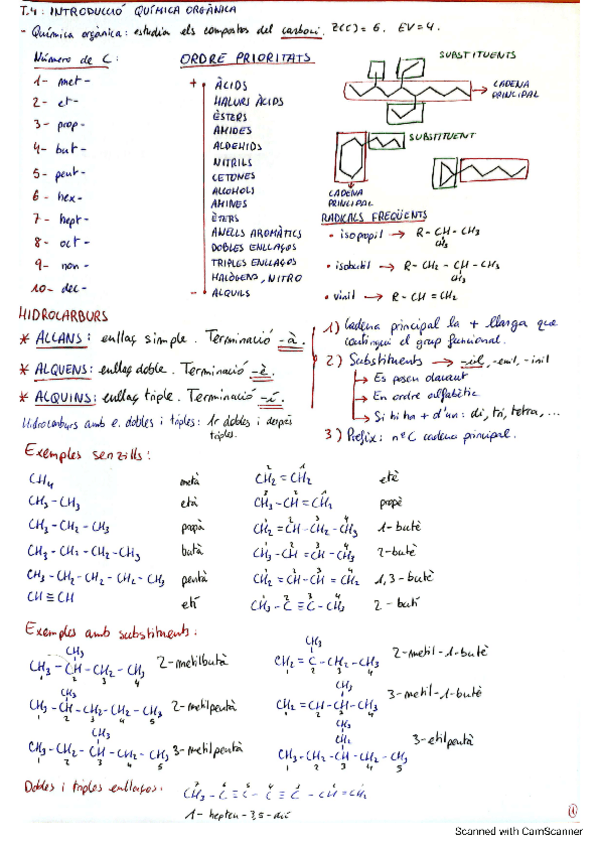 T.4: INTRODUCCIÓ QUÍMICA ORGÀNICA
- Química orgànica: estudia els compostos del carboni. Z(C)= 6. EV=4.
Número de C:
1- met-
2- et-
3- prop-
4- but-
5- pent-
6- hex-
7- hept-
8- oct-
9- non-
10- dec-
ORDRE PRIORITATS
+ ÀCIDS
HALURS ÀCIDS
ÈSTERS
AMIDES
ALDEHIDS
NITRILS
CETONES
ALCOHOLS
AMINES
ÈTERS
ANELLS AROMÀTICS
DOBLES ENLLAÇOS
TRIPLES ENLLAÇOS
HALÒGENS, NITRO
- ALQUILS
SUBSTITUENTS
CADENA PRINCIPAL
SUBSTITUENT
CADENA PRINCIPAL
RADICALS FREQÜENTS
• isopropil → R-CH-CH3
CH3
• isobutil → R-CH2-CH-CH3
CH3
• vinil → R-CH=CH2
HIDROCARBURS
* ALCANS: enllaç simple. Terminació -à.
* ALQUENS: enllaç doble. Terminació -è.
* ALQUINS: enllaç triple. Terminació -í.
Hidrocarburs amb e. dobles i triples: 1r dobles i després
triples.
1) Cadena principal la + llarga que
contingui el grup funcional.
2) Substituents → -il, -enil, -inil
→ Es posen davant
→ En ordre alfabètic
→ Si hi ha + d'un: di, tri, tetra, ...
3) Prefix: nº C cadena principal.
Exemples senzills:
CH4 metà
CH3-CH3 età
CH3-CH2-CH3 propà
CH3-CH2-CH2-CH3 butà
CH3-CH2-CH2-CH2-CH3 pentà
CH≡CH etí
CH2=CH2 etè
2 1
CH3-CH=CH2 propè
3 2 1
CH2=CH-CH2-CH3 1-butè
1 2 3 4
CH3-CH=CH-CH3 2-butè
1 2 3 4
CH2=CH-CH=CH2 1,3-butè
1 2 3 4
CH3-C≡C-CH3 2-butí
1 2 3 4
Exemples amb substituents:
CH3
CH3-CH-CH2-CH3 2-metilbutà
1 2 3 4
CH3
CH3-CH-CH2-CH2-CH3 2-metilpentà
1 2 3 4 5
CH3
CH3-CH2-CH-CH2-CH3 3-metilpentà
1 2 3 4 5
CH3
CH2=C-CH2-CH3 2-metil-1-butè
1 2 3 4
CH3
CH2=CH-CH-CH3 3-metil-1-butè
1 2 3 4
CH3
CH2
CH3-CH2-CH-CH2-CH3 3-etilpentà
1 2 3 4 5
Dobles i triples enllaços:
CH3-C≡C-C≡C-CH=CH2
1-hepten-3,5-dií
1
Scanned with CamScanner